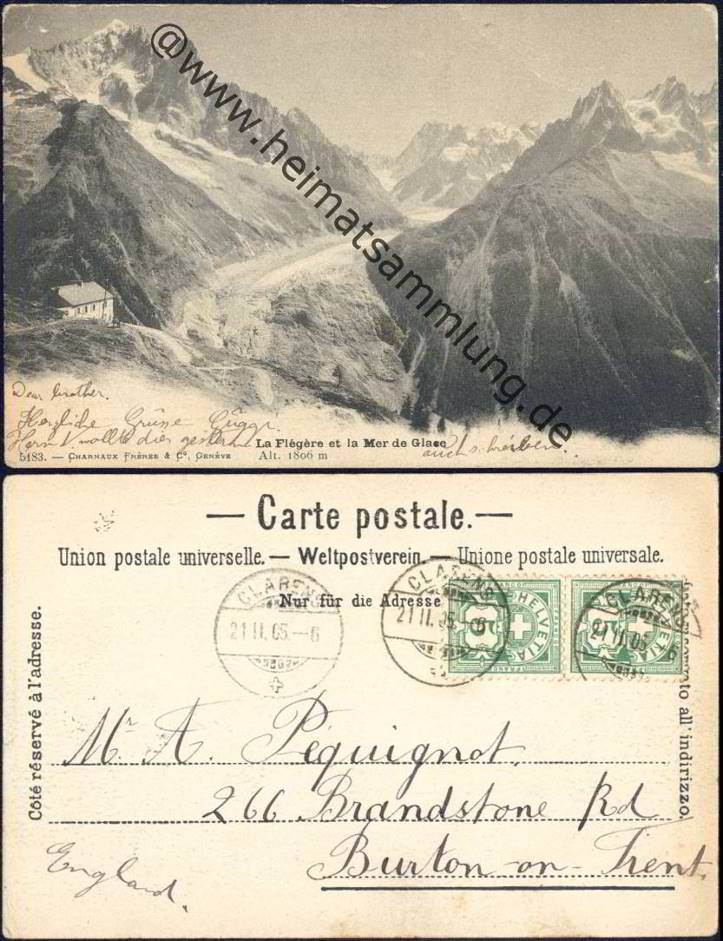 @www.heimatsammlung.de
Dear brother.
Herzliche Grüsse
wollte dir gestern
auch schreiben.
La Flégère et la Mer de Glace
5183. — CHARNAUX FRÈRES & Cº, GENÈVE
Alt. 1806 m
— Carte postale. —
Union postale universelle. — Weltpostverein. — Unione postale universale.
Nur für die Adresse
CLARENS
21 II. 05. – 6
CLARENS
21 II. 05. – 6
HELVETIA
5
CLARENS
21 II. 05. 6
HELVETIA
5
Côté réservé à l'adresse.
all'indirizzo.
Mr A. Péquignot.
266 Brandstone Rd
Burton-on-Trent.
England.